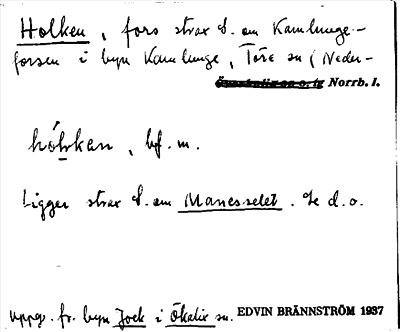 Holken, fors strax S. om Kamlunge-
forsen i byn Kamlunge, Töre sn (Neder-
Norrb. l.
hólkan, bf. m.
Ligger strax S. om Manesselet. Se d. o.
Uppg. fr. byn Jock i Ökalix sn. EDVIN BRÄNNSTRÖM 1937